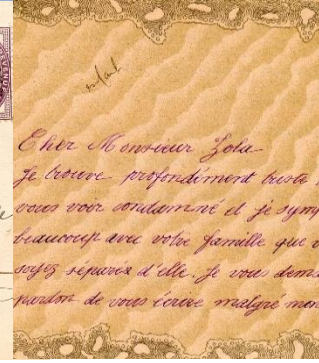 enfant
Cher Monsieur Zola
Je trouve profondément triste
vous voir condamné et je symp
beaucoup avec votre famille que v
soyez séparés d'elle. Je vous dem
pardon de vous écrire malgré mon